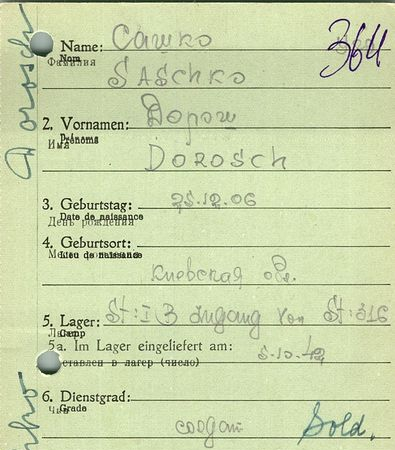 Dorosch
364
Name: Сашко
Nom
Фамилия SASCHKO
2. Vornamen: Дорош
Prénoms
Имя DOROSCH
3. Geburtstag: 25.12.06
Date de naissance
День рождения
4. Geburtsort:
Lieu de naissance
Киевская обл.
5. Lager: St: I B Zugang von St: 316
Camp
Лагерь
5a. Im Lager eingeliefert am: 5.10.42
оставлен в лагер (число)
6. Dienstgrad:
Grade
Чин
солдат Sold.